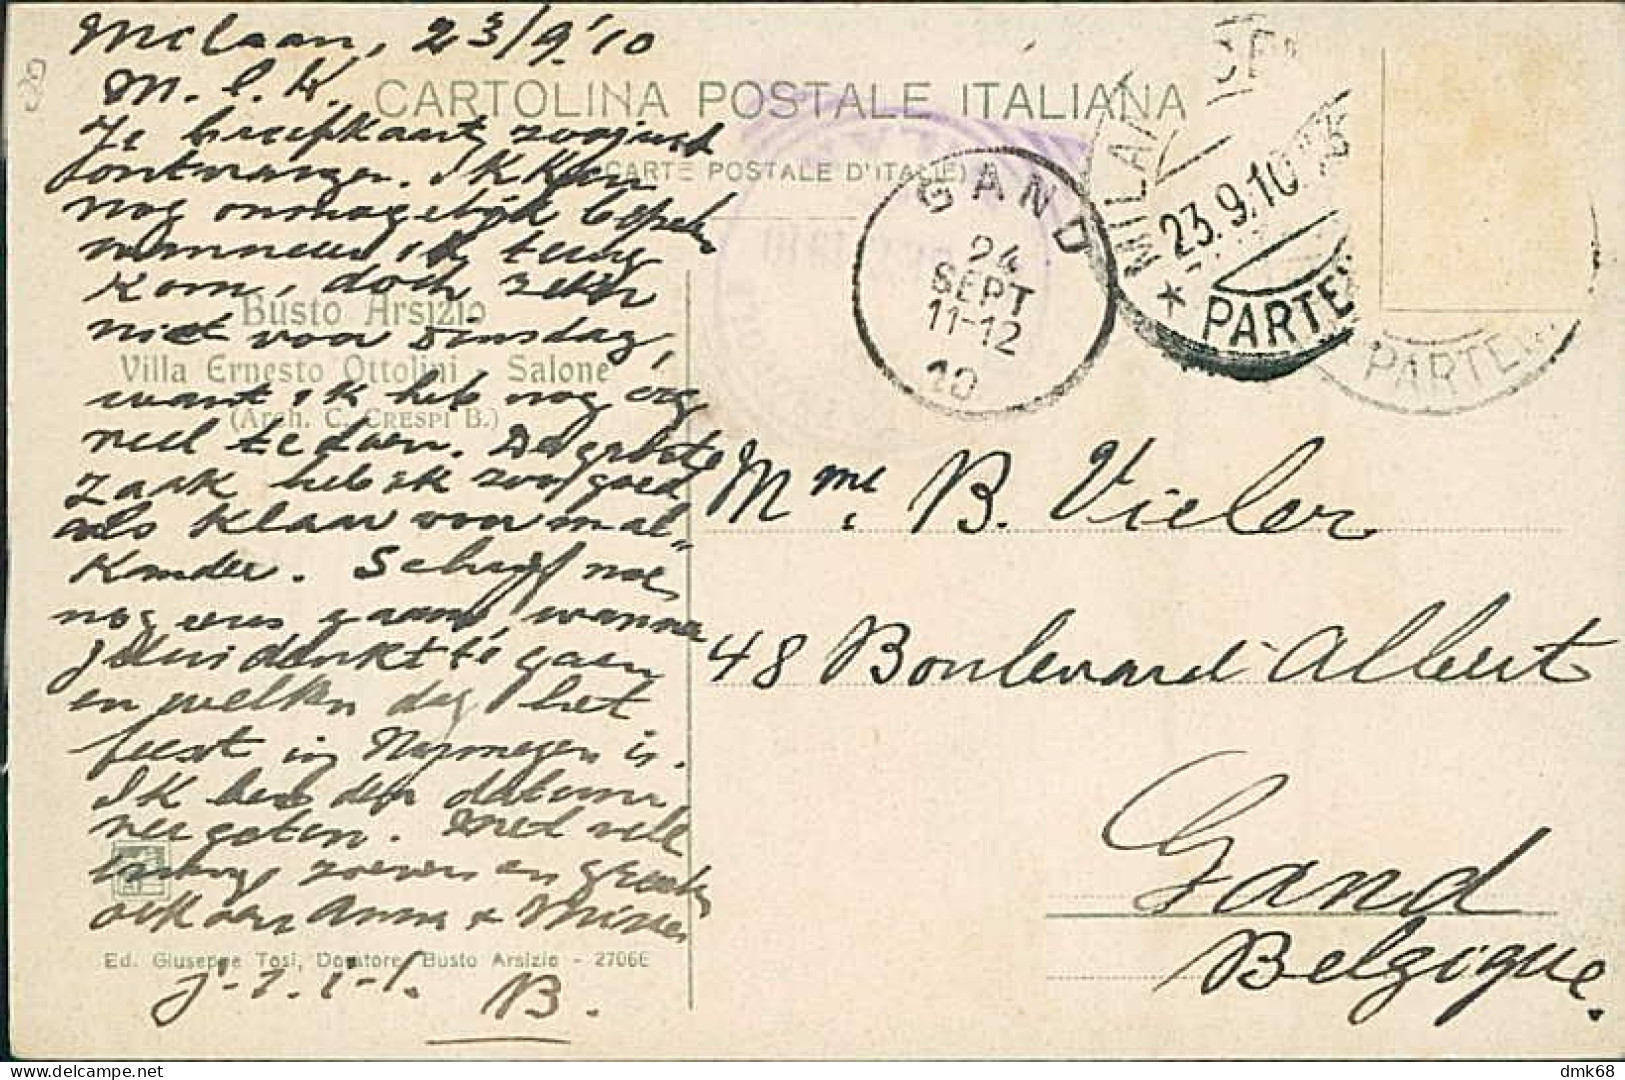 Milaan, 23/9.'10
M. l. K.
Je briefkaart zoojuist
ontvangen. Ik kan
nog onmogelijk bepalen
wanneer ik terug
kom, doch zeker
niet voor Dinsdag,
want ik heb nog erg
veel te doen. De groote
zaak heb ik zoo goed
als klaar voor mal-
kander. Schrijf me
nog eens gauw wanneer
je denkt te gaan
en welken dag het
feest in Nijmegen is.
Ik heb den datum
vergeten. Met vele
zoenen en groeten
ook aan Anna &
B.
CARTOLINA POSTALE ITALIANA
(CARTE POSTALE D'ITALIE)
Busto Arsizio
Villa Ernesto Ottolini - Salone
(Arch. C. CRESPI B.)
Ed. Giuseppe Tosi, Doratore, Busto Arsizio - 27066
GAND
24
SEPT
11-12
10
MILANO
* 23.9.10
PARTENZA
PARTEN
Mme. B. Vieler
48 Boulevard Albert
Gand
Belgique.
dmk68